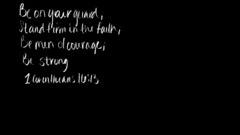 Be on your guard,
Stand firm in the faith,
Be men of courage,
Be strong
1 Corinthians 16:13